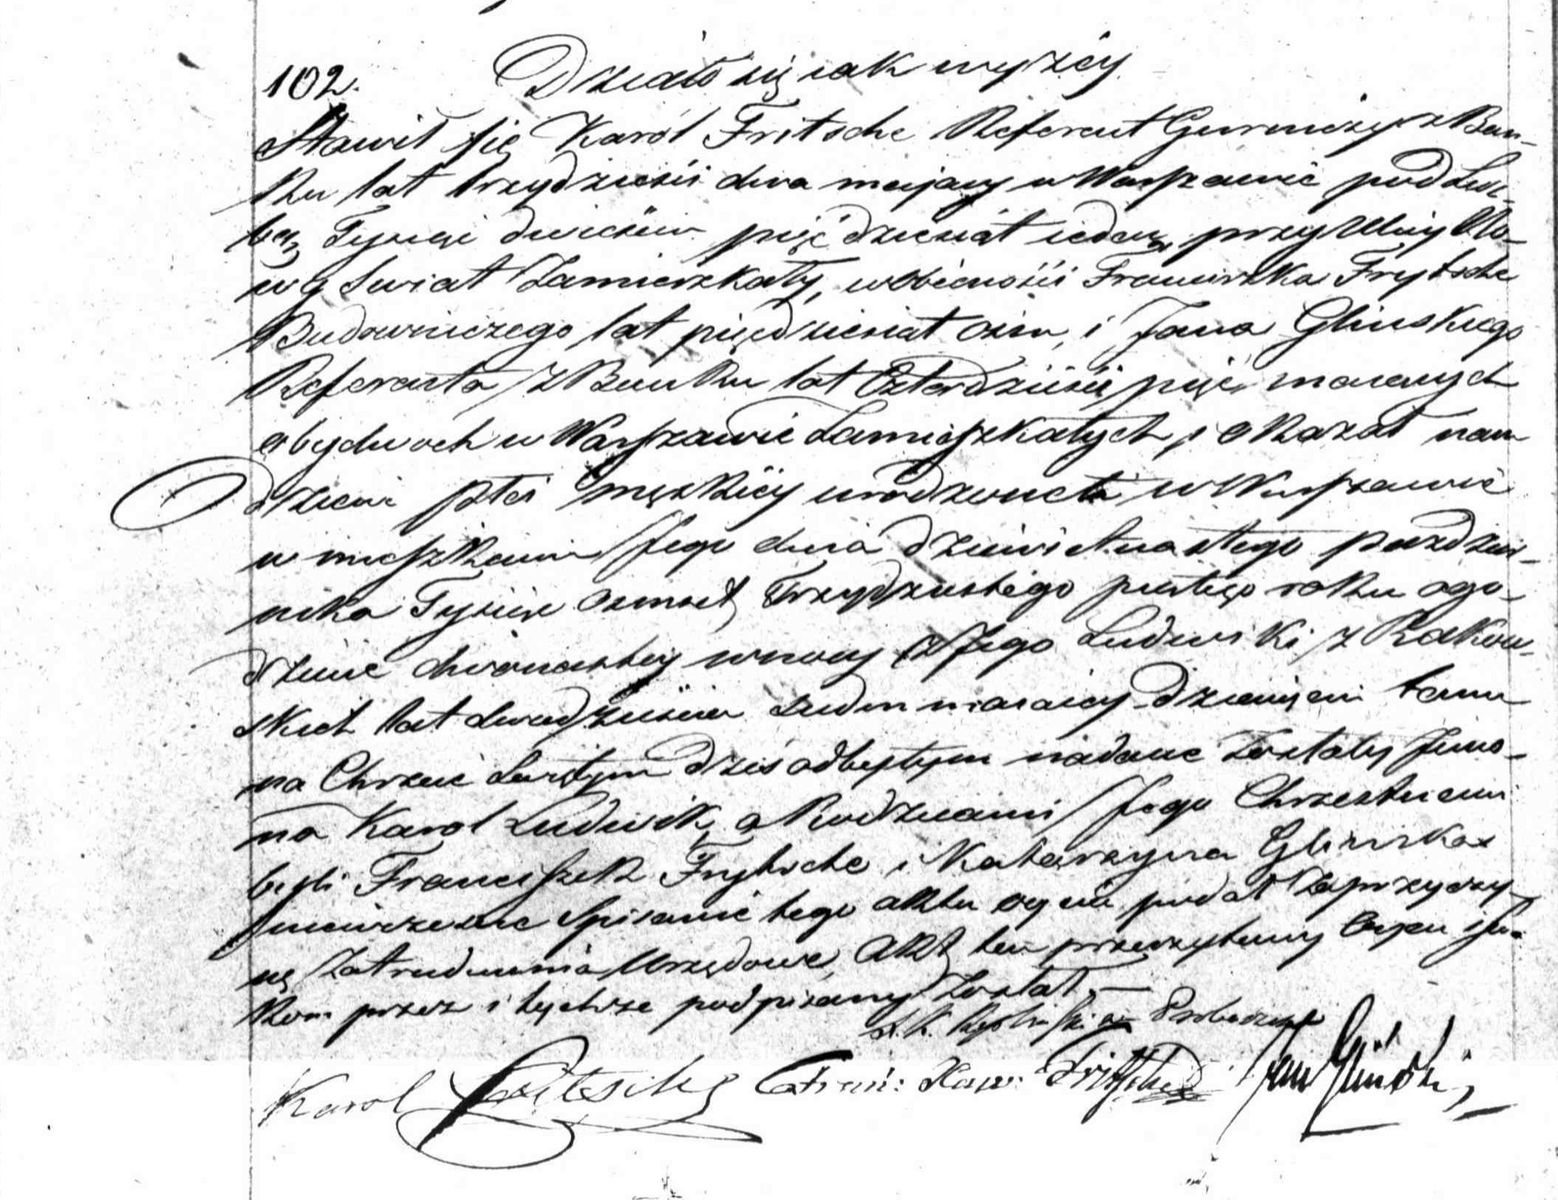 102. Działo się iak wyżéy
Stawił się Karól Fritsche Referent Gurniczy z Ban-
ku lat trzydzieści dwa maiący w Warszawie pod Licz-
bą Tysiąc dwieście pięćdziesiąt ieden przy Ulicy No-
wy Swiat Zamieszkały, w obecności Franciszka Frytsche
Budowniczego lat pięćdziesiat ośm, i Jana Glinskiego
Referenta z Banku lat Czterdzieści pięć maiących
obydwoch w Warszawie Zamieszkałych, i okazał nam
dziecie płci męzkiéy urodzone w Warszawie
w mieszkaniu Jego dnia dziewietnastego pazdzier-
nika Tysiąc ośmset Trzydziestego piątego roku o go-
dzinie dwunastey w nocy z Jego Ludwiki z Rutkow-
skich lat dwadzieścia siedm maiaicy Dziecięciu temu
na Chrzcie Swiętym dziś odbytym nadane Zostały Jmio-
na Karol Ludwik, a Rodzicami Jego Chrzestnemi
byli Franciszek Frytsche i Katarzyna Glinska
spisanie tego aktu oyciec podał Za przyczy-
nę Zatrudnienia Urzędowe, Akt ten przeczytany Oycu i Swia-
kom przez i tychże podpisany Został. —
Karol Fritsche Fran: Xaw: Fritsche Jan Glinski